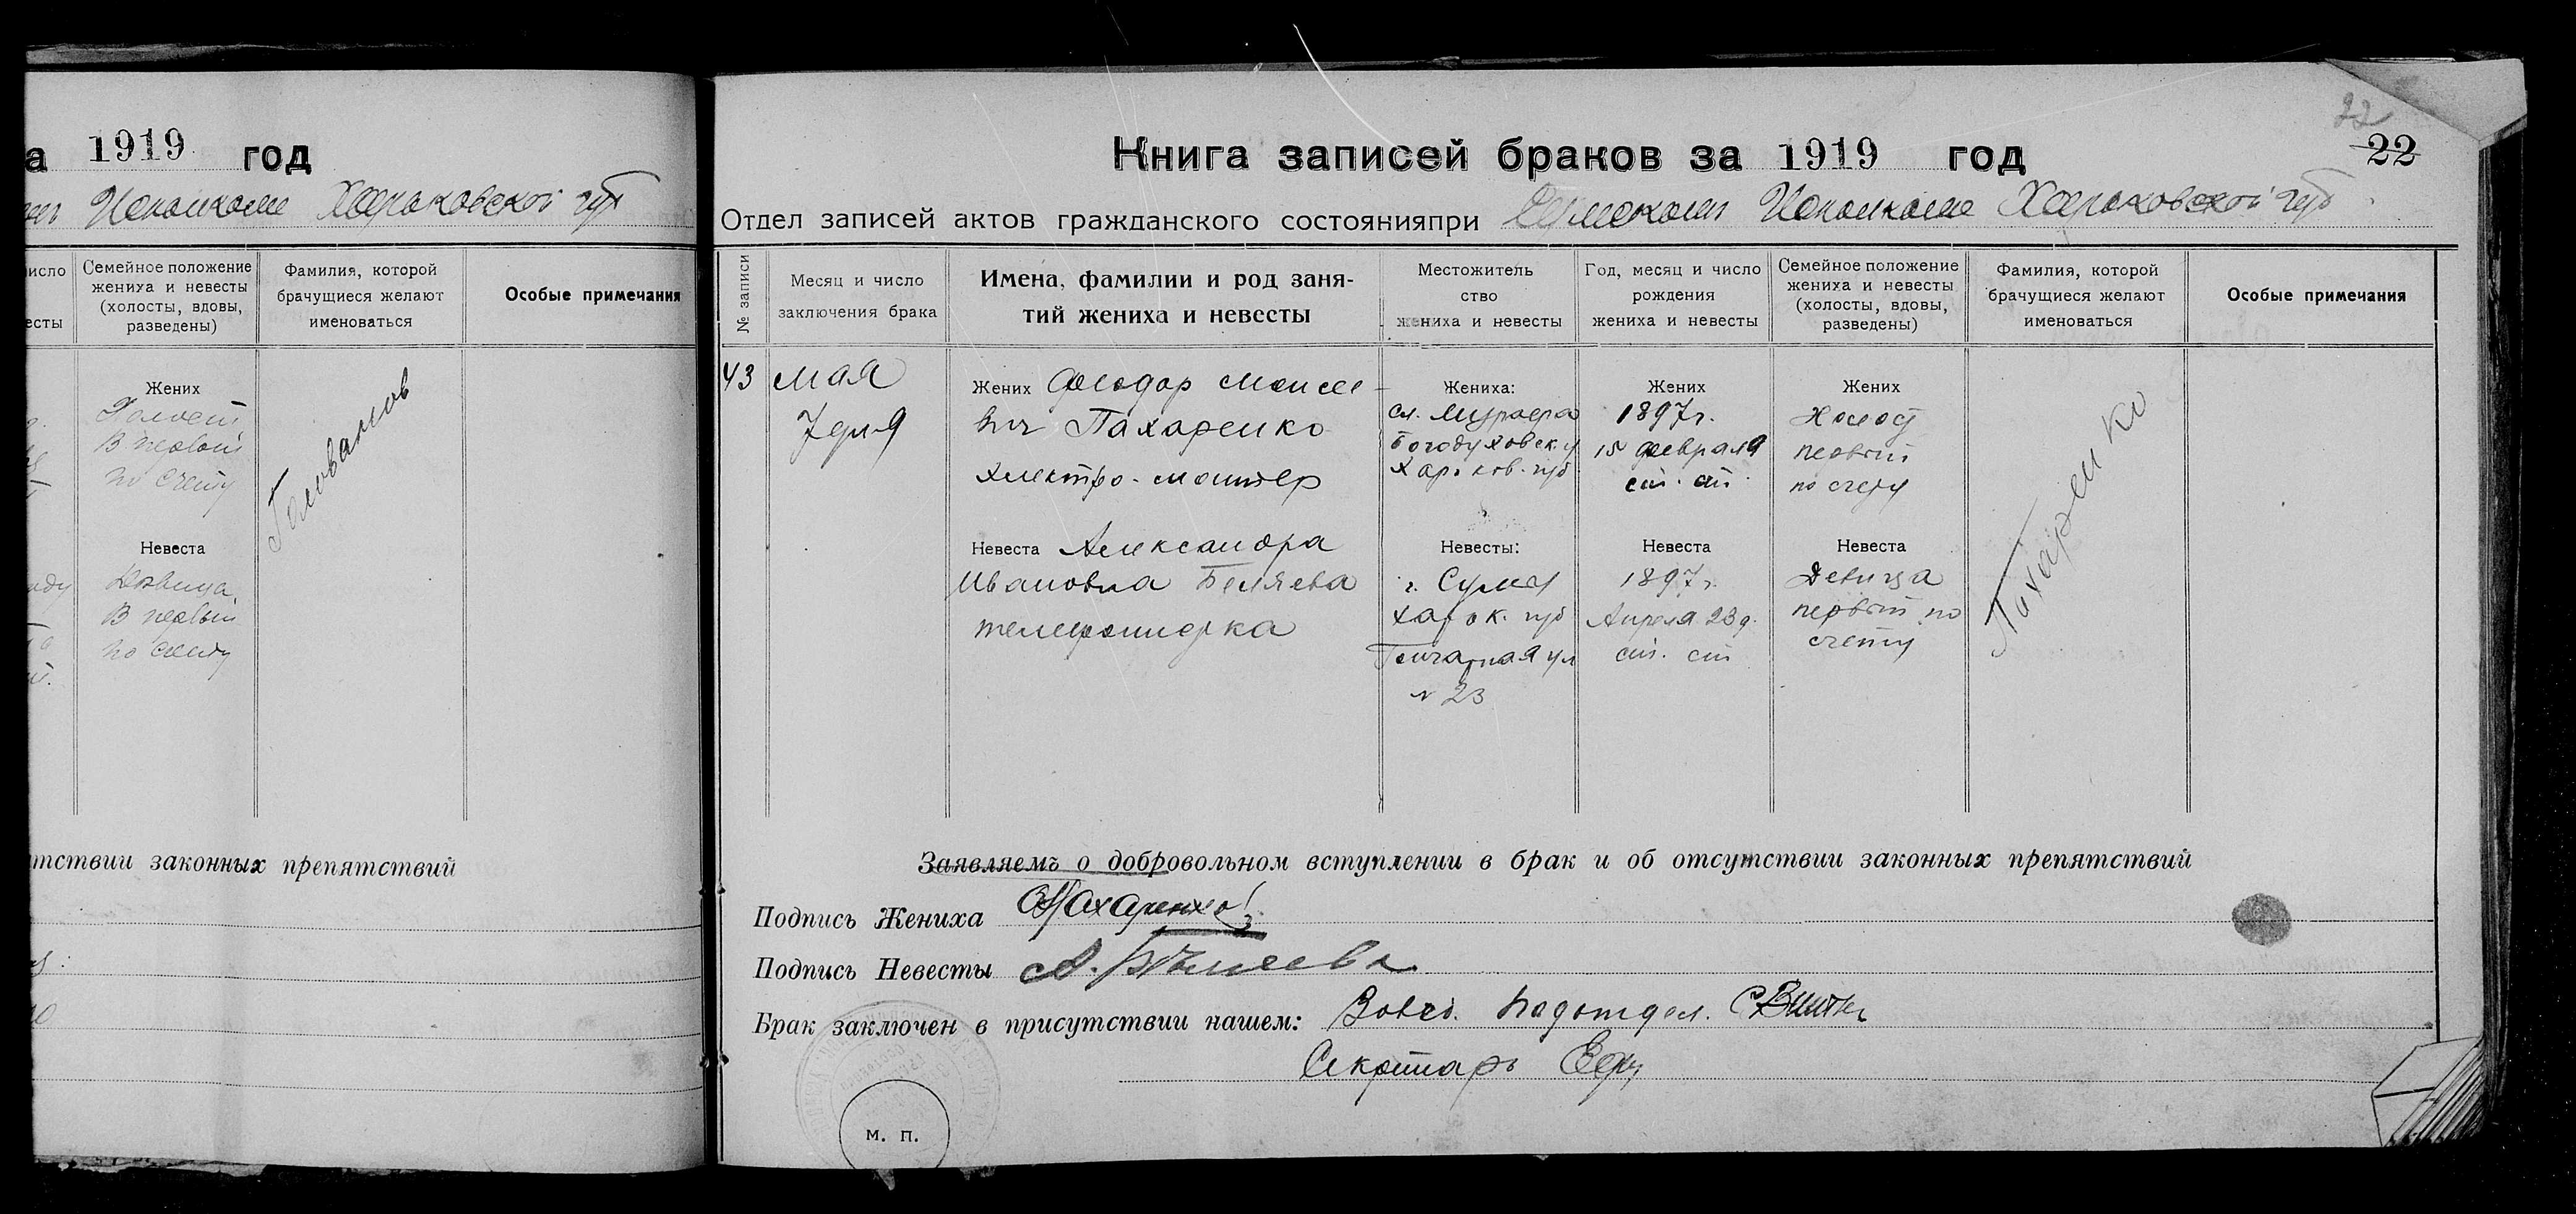 а 1919 год
Исполкоме Харьковской губ
исло
есты
Семейное положение
жениха и невесты
(холосты, вдовы,
разведены)
Фамилия, которой
брачущиеся желают
именоваться
Особые примечания
Жених
Холост
В первый
по счету
Голованов
Невеста
Девица
В первый
по счету
тствии законных препятствий
22
Книга записей браков за 1919 год
22
Отдел записей актов гражданского состоянияпри Сумском Исполкоме Харьковской губ.
№ записи
Месяц и число
заключения брака
Имена, фамилии и род заня-
тий жениха и невесты
Местожитель
ство
жениха и невесты
Год, месяц и число
рождения
жениха и невесты
Семейное положение
жениха и невесты
(холосты, вдовы,
разведены)
Фамилия, которой
брачущиеся желают
именоваться
Особые примечания
43
мая
7 дня
Жених Феодор Моисее-
вич Пахаренко
электро-монтер
Жениха:
сл. Мурафа
Богодуховск. у
Харьков. губ
Жених
1897 г.
15 февраля
ст. ст.
Жених
Холост
первый
по счету
Пахаренко
Невеста Александра
Ивановна Беляева
телефонистка
Невесты:
г. Сумы
Харьк. губ
Гончарная ул
№ 23
Невеста
1897 г.
Апреля 23 д.
ст. ст
Невеста
Девица
первый по
счету
Заявляемъ о добровольном вступлении в брак и об отсутствии законных препятствий
Подпись Жениха Ф Пахаренко
Подпись Невесты А. Бѣляева
Брак заключен в присутствии нашем: Завед. подотдел.
Секретарь
м. п.